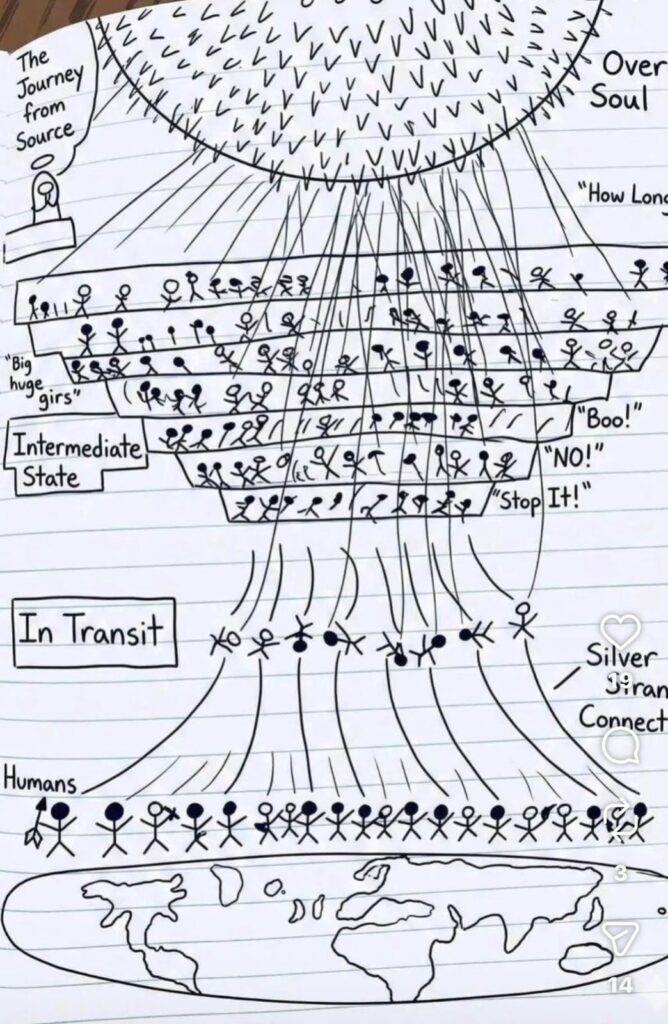 The
Journey
from
Source
Over
Soul
"How Long
"Big
huge
girs"
Intermediate
State
"Boo!"
"NO!"
"Stop It!"
In Transit
Silver
Stran
Connect
Humans
19
3
14